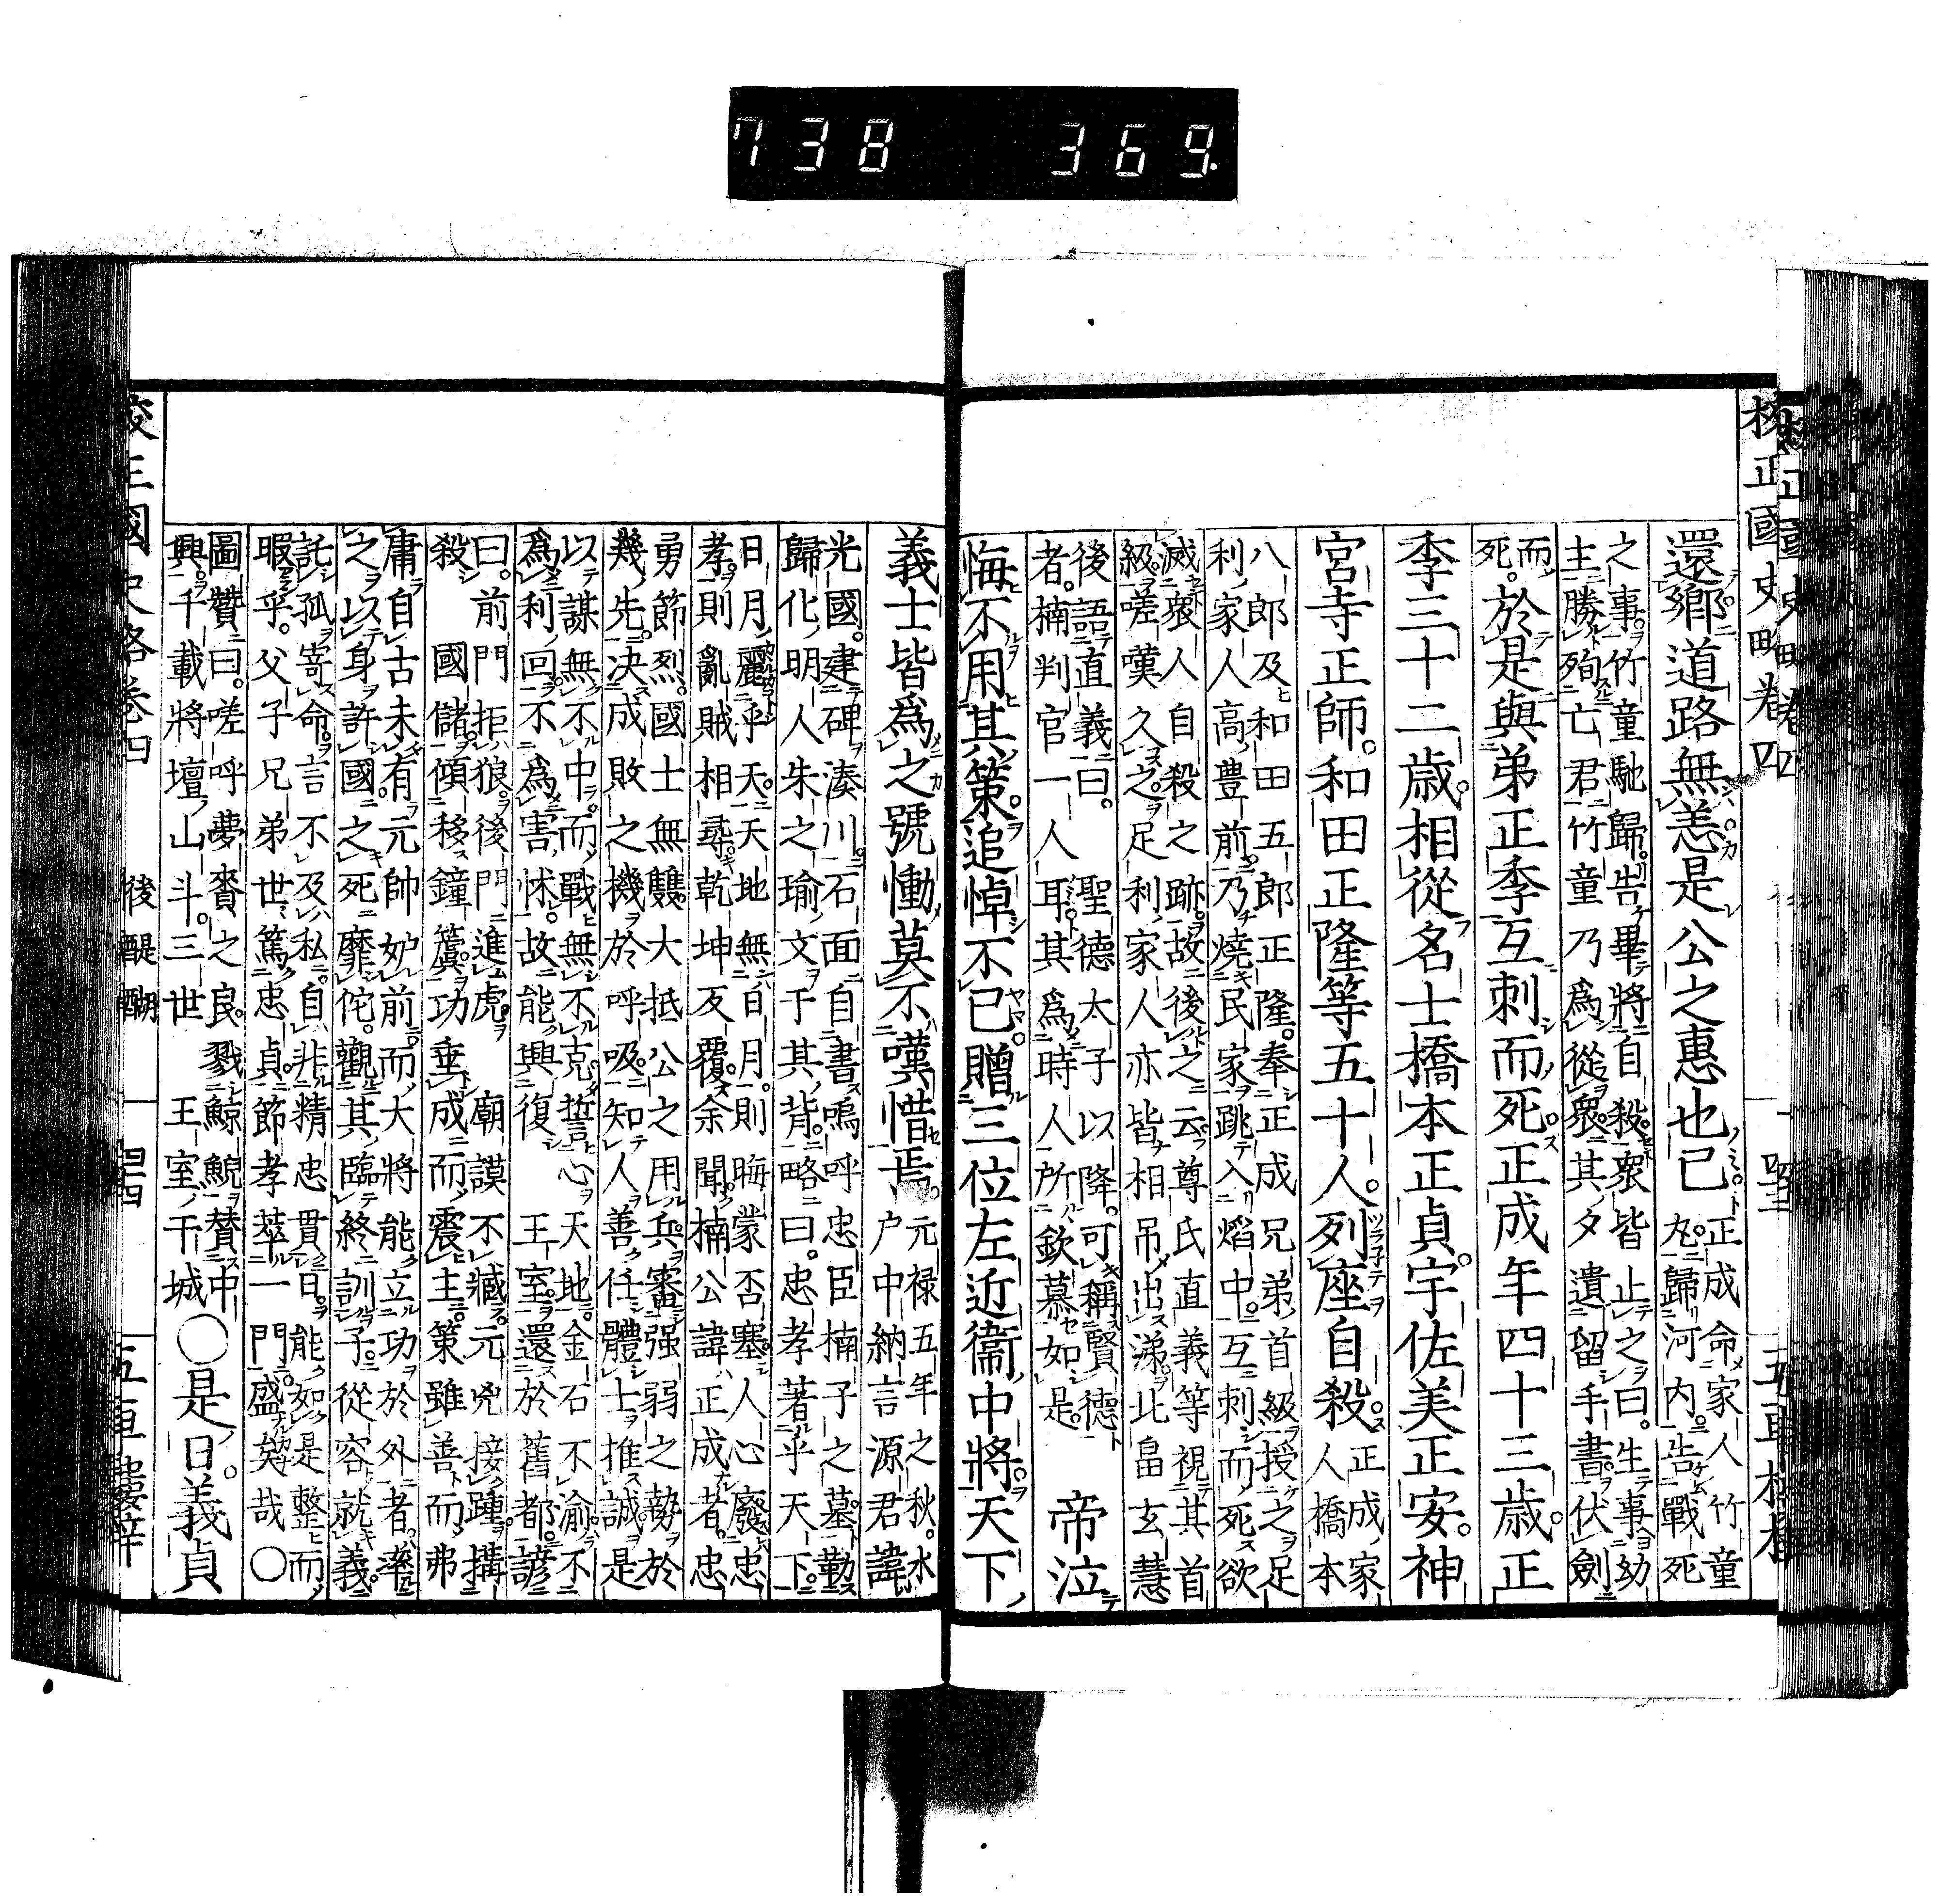 738 369
校正國史略卷四
四十三
還鄉道路無恙是公之惠也已正成命家人竹童
丸歸河内告戰死
之事竹童馳歸告畢將自殺衆皆止之曰生事幼
主勝殉亡君竹童乃爲從衆其夕遺留手書伏劍
而
死。於是與弟正季互刺而死正成年四十三歲。正
季三十二歲。相從名士橋本正貞。宇佐美正安。神
宮寺正師。和田正隆等五十人。列座自殺正成家
人橋本
八郎及和田五郎正隆。奉正成兄弟首級授之足
利家人高豊前乃燒民家跳入焰中互刺而死欲
滅衆人自殺之跡故後之云尊氏直義等視其首
級嗟嘆久之足利家人亦皆相吊出涕此畠玄慧
後語直義曰。聖德太子以降。可稱賢德
者。楠判官一人耳其爲時人所欽慕如是。帝泣
悔不用其策追悼不已贈三位左近衞中將天下
義士皆爲之號慟莫不嘆惜焉。元禄五年之秋。水
户中納言源君諱
光國。建碑湊川石面自書嗚呼忠臣楠子之墓勒
歸化明人朱之瑜文于其背略曰。忠孝著乎天下。
日月麗乎天天地無日月。則晦蒙否塞人心廢忠
孝則亂賊相尋乾坤反覆余聞楠公諱正成者。忠
勇節烈。國士無雙大抵公之用兵審强弱之勢於
幾先决成敗之機於呼吸知人善任體士推誠是
以謀無不中而戰無不克誓心天地金石不渝不
爲利回不爲害怵故能興復王室還於舊都諺
曰。前門拒狼後門進虎廟謨不臧元兇接踵搆
殺國儲傾移鐘簴功垂成而震主策雖善而弗
庸自古未有元帥妒前而大將能立功於外者。率
之以身許國之死靡佗。觀其臨終訓子從容就義。
託孤寄命言不及私自非精忠貫日能如是整而
暇乎。父子兄弟世篤忠貞節孝萃一門盛矣哉〇
圖贊曰。嗟呼夢賚之良。戮鯨鯢贊中
興千載將壇山斗。三世王室干城〇是日義貞
校正國史略卷四
後醍醐
四十四
五車樓梓